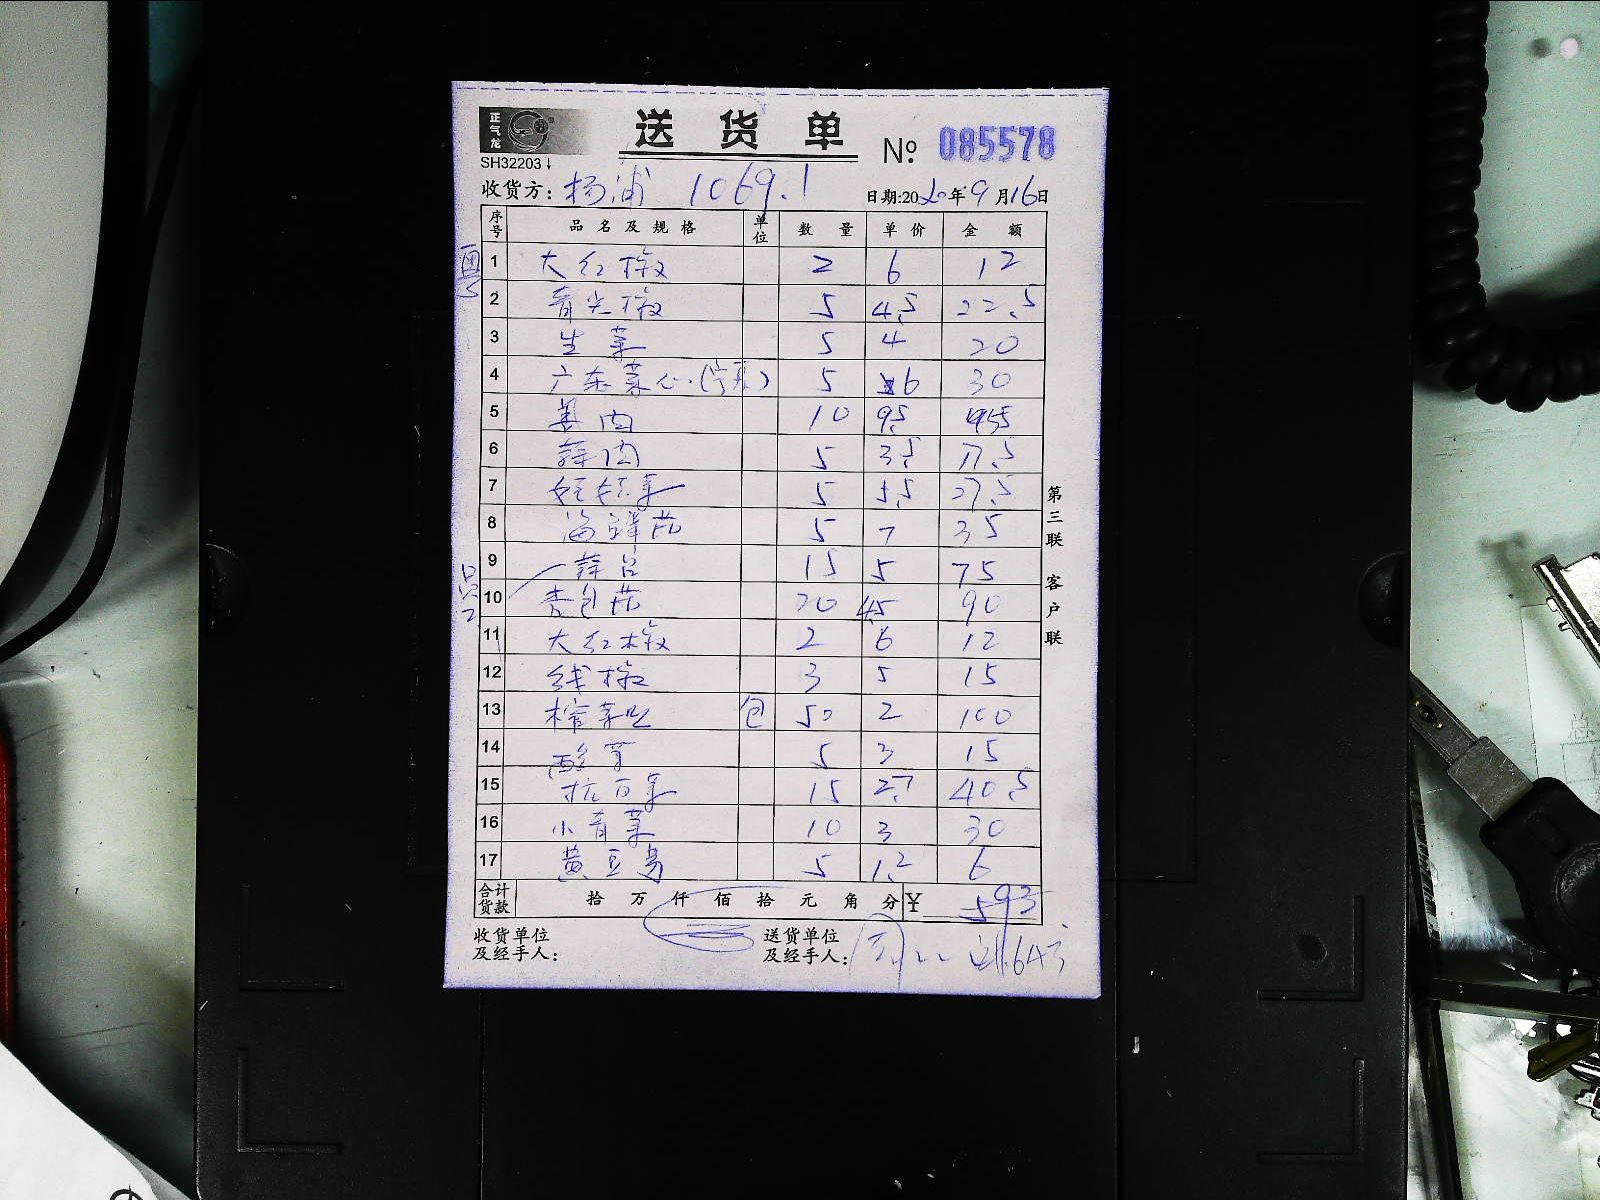 正气龙
送货单 № 085578
SH32203
收货方: 杨浦 1069.1 日期:2020年9月16日
序号 品名及规格 单位 数量 单价 金额
1 大红椒 2 6 12
2 青尖椒 5 4.5 22.5
3 生菜 5 4 20
4 广东菜心 5 6 30
5 姜肉 10 9.5
6 蒜肉 5 3.5 17.5
7 娃娃菜 5 5.5 27.5
8 海鲜菇 5 7 35
9 蒜台 15 5 75
10 杏包菇 20 4.5 90
11 大红椒 2 6 12
12 线椒 3 5 15
13 榨菜丝 包 50 2 100
14 酸菜 5 3 15
15 杭白菜 15 2.7 40.5
16 小青菜 10 3 30
17 黄豆芽 5 1.2 6
合计货款 拾 万 仟 佰 拾 元 角 分 ¥ 593
收货单位及经手人: 送货单位及经手人:
第三联 客户联